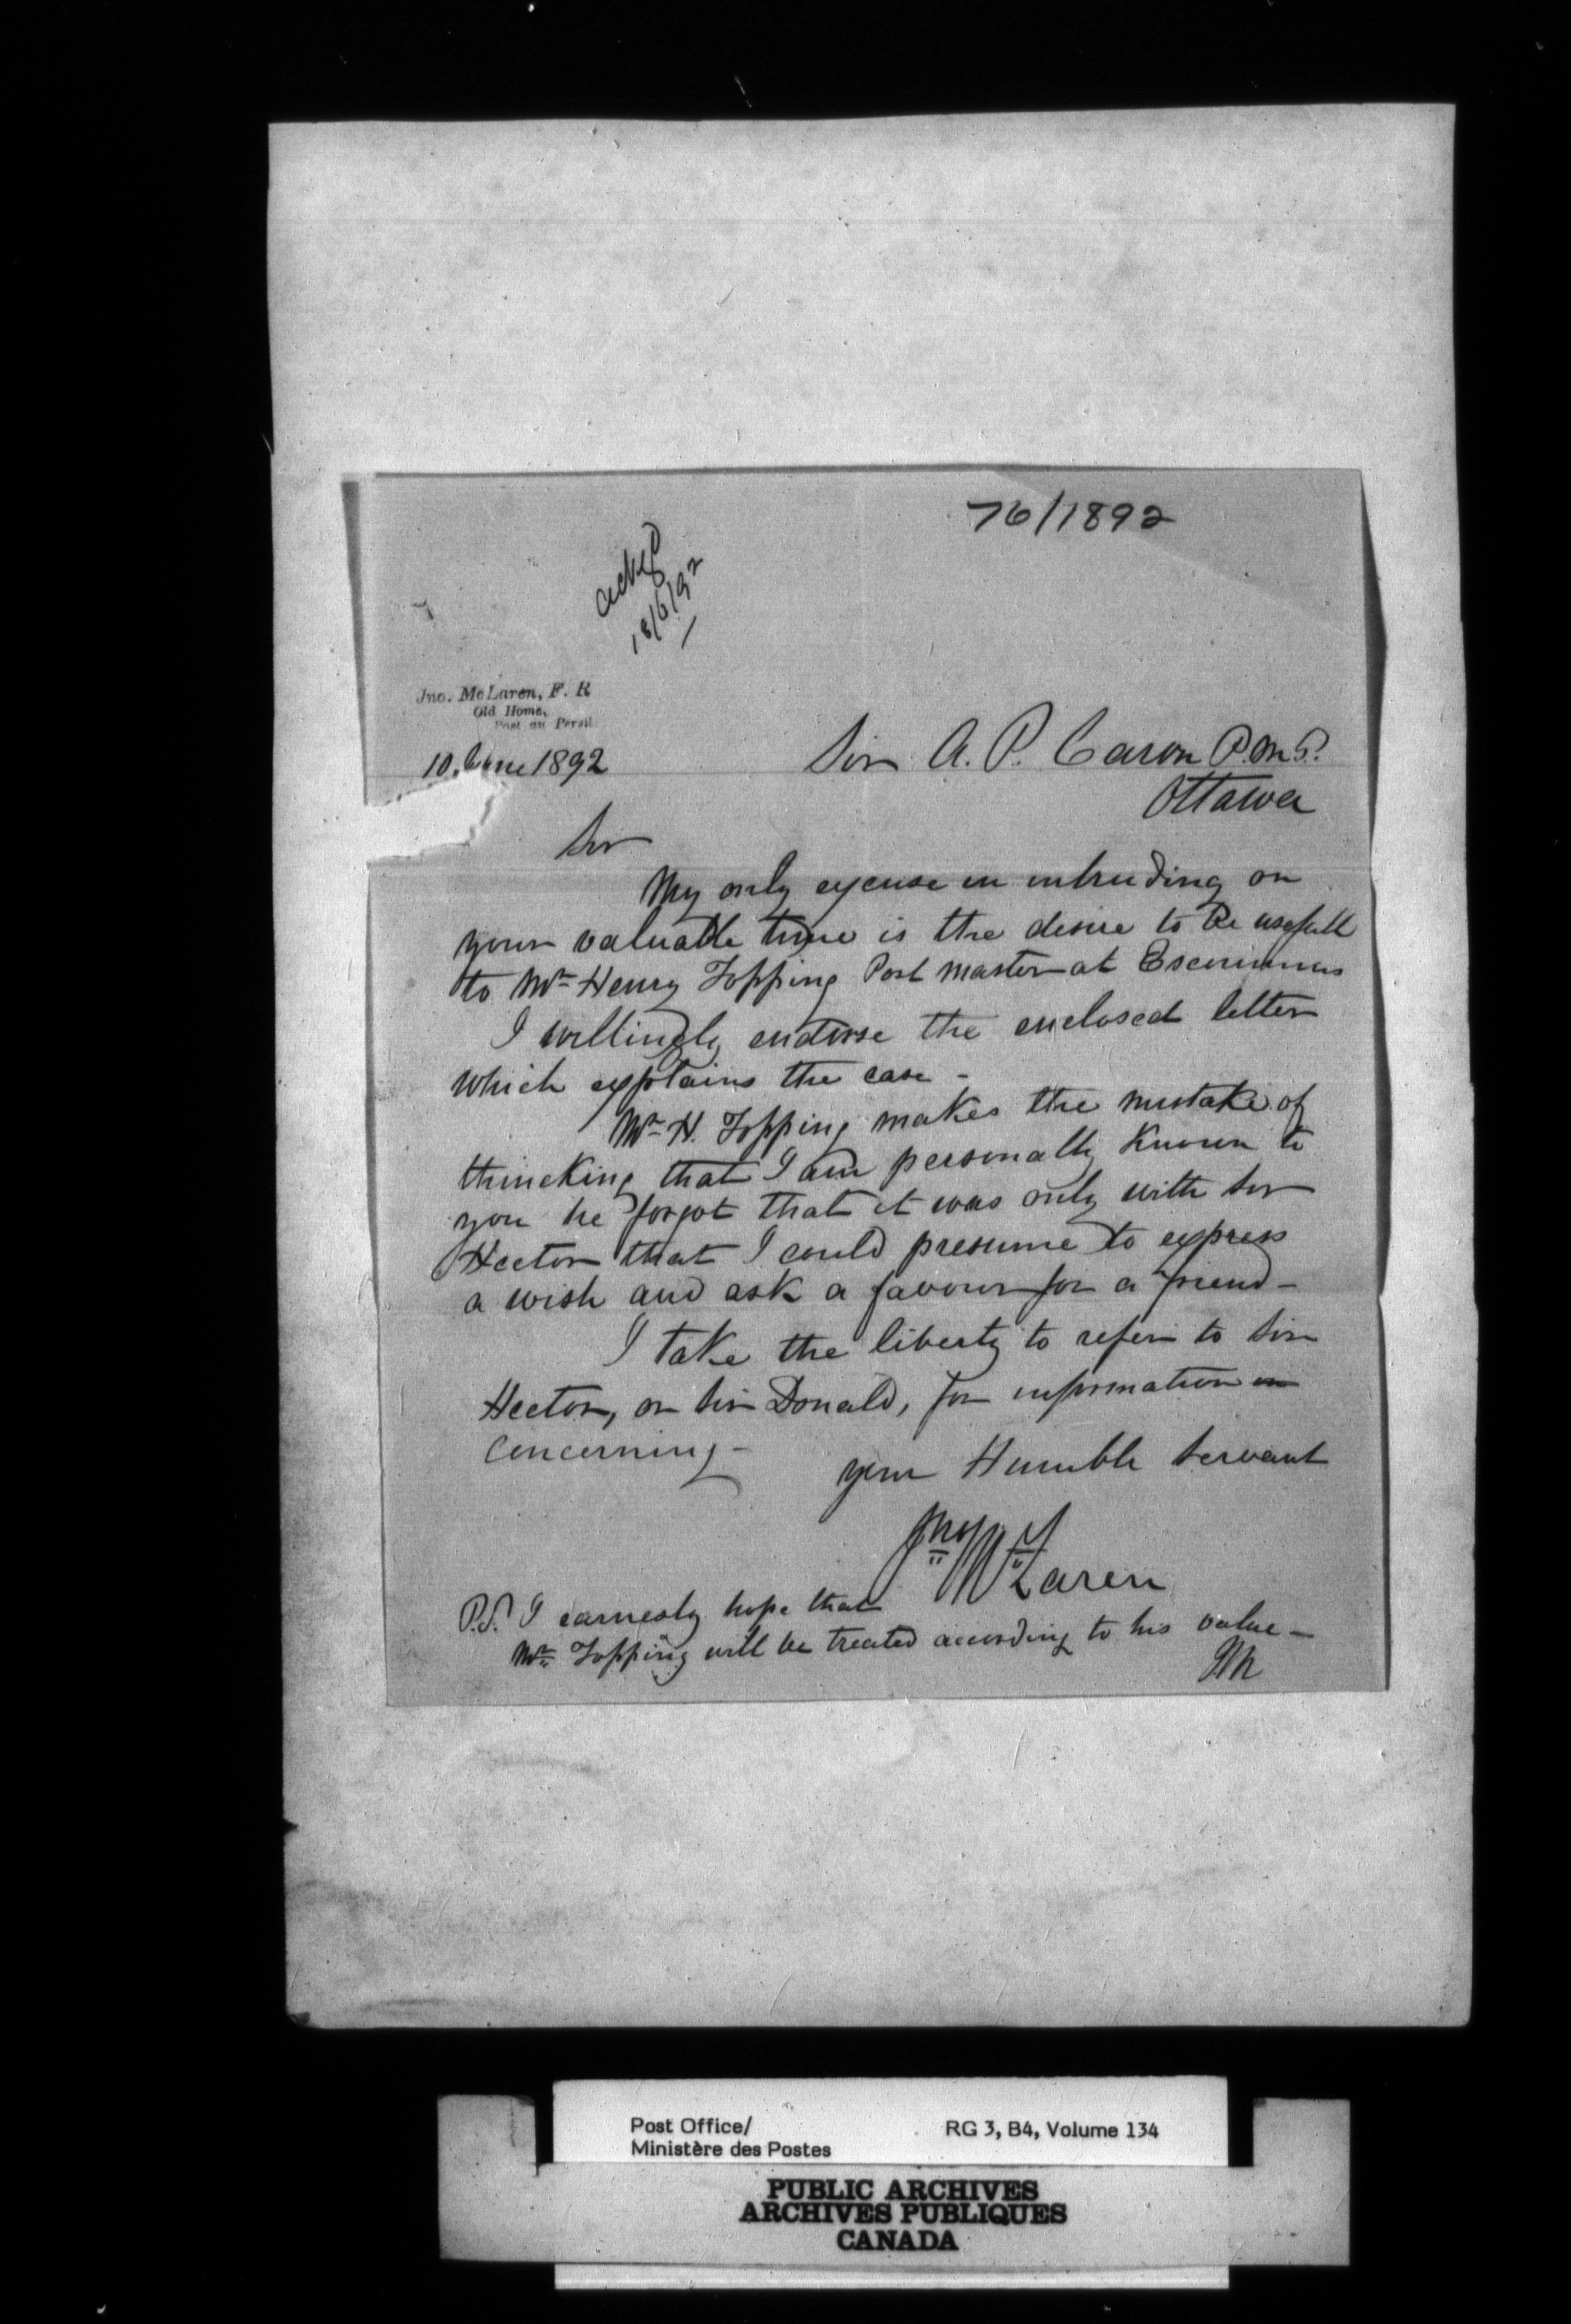 76/1892
ackgd
18/6/92
Jno. McLaren, F. R
Old Home,
Port au Persil
10. June 1892
Sir A. P. Caron P.M.G.
Ottawa
Sir
My only excuse in intruding on
your valuable time is the desire to be usefull
to Mr Henry Topping Post master at Escoumins
I willingly endorse the enclosed letter
which explains the case -
Mr H. Topping makes the mistake of
thincking that I am personally known to
you he forgot that it was only with Sir
Hector that I could presume to express
a wish and ask a favour for a friend -
I take the liberty to refer to Sir
Hector, or Sir Donald, for information
concerning -
your Humble Servant
Jno McLaren
P.S. I earnesly hope that
Mr Topping will be treated according to his value -
Post Office/
Ministère des Postes
RG 3, B4, Volume 134
PUBLIC ARCHIVES
ARCHIVES PUBLIQUES
CANADA